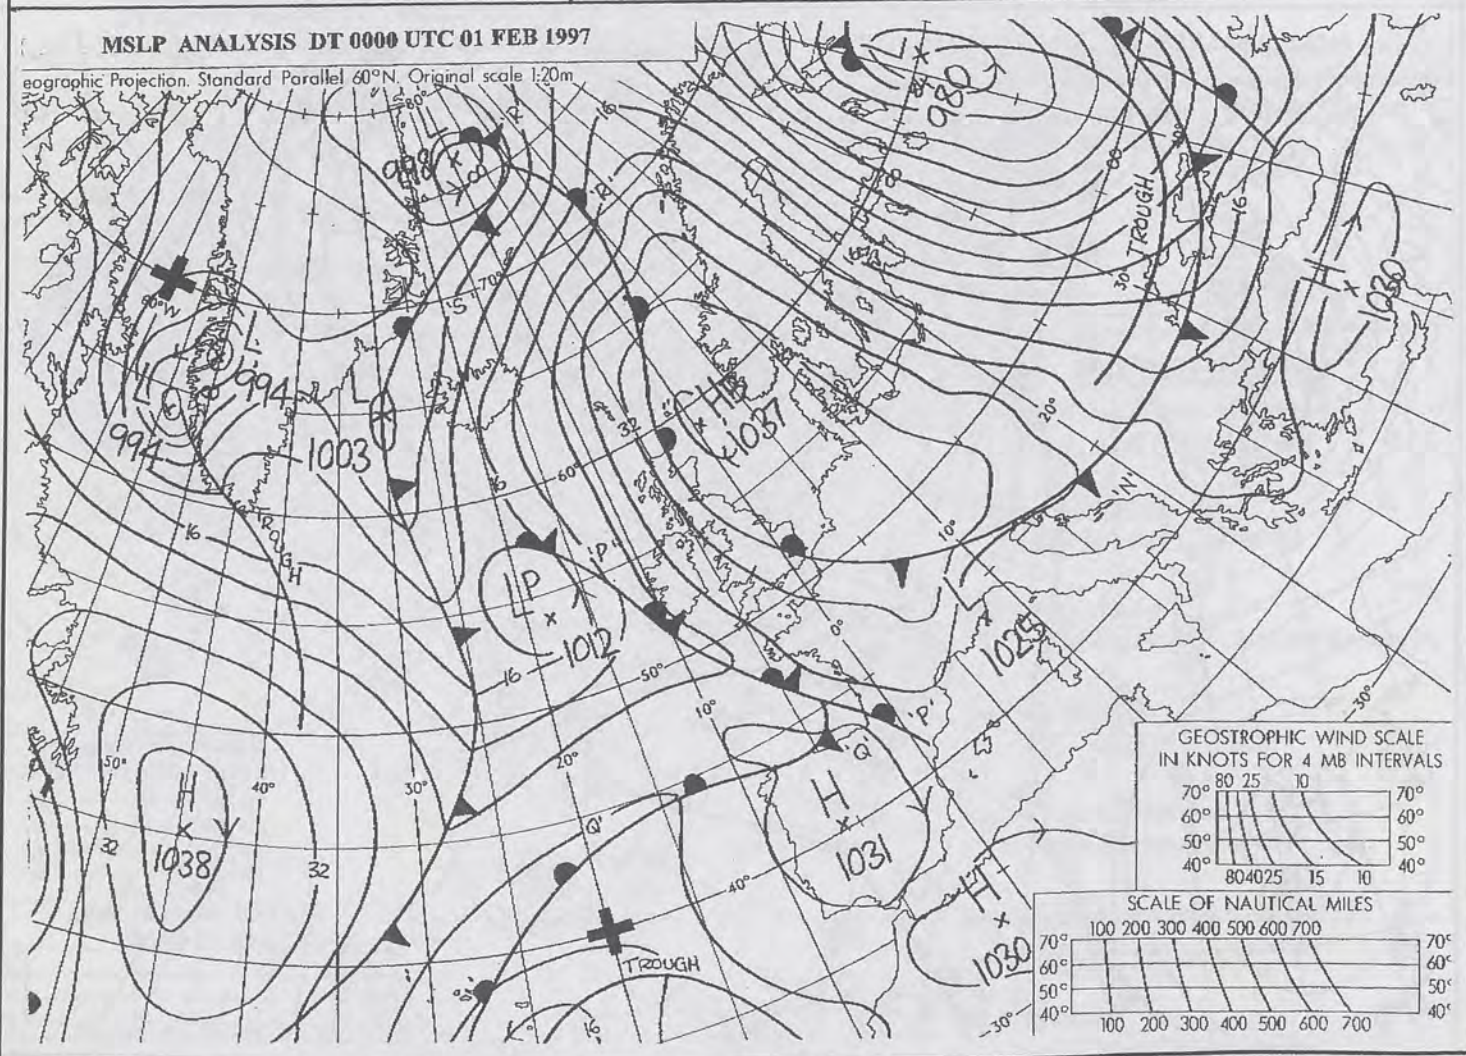 MSLP ANALYSIS DT 0000 UTC 01 FEB 1997
eographic Projection. Standard Parallel 60°N. Original scale 1:20m
80°
L
998
'R'
16
L
980
40°
00
'R'
TROUGH
30°
16
H
1030
50°W
'S'
70°
L
994
L
994
L
1003
32
H
1037
20°
60°
16
16
TROUGH
LP
1012
'P'
16
50°
10°
0°
10°
'N'
L
1025
30°
50°
H
1038
32
32
40°
30°
20°
10°
'P'
'Q'
'Q'
H
1031
40°
TROUGH
16
H
1030
30°
GEOSTROPHIC WIND SCALE
IN KNOTS FOR 4 MB INTERVALS
80 25 10
70° 70°
60° 60°
50° 50°
40° 40°
80 40 25 15 10
SCALE OF NAUTICAL MILES
100 200 300 400 500 600 700
70° 70°
60° 60°
50° 50°
40° 40°
100 200 300 400 500 600 700